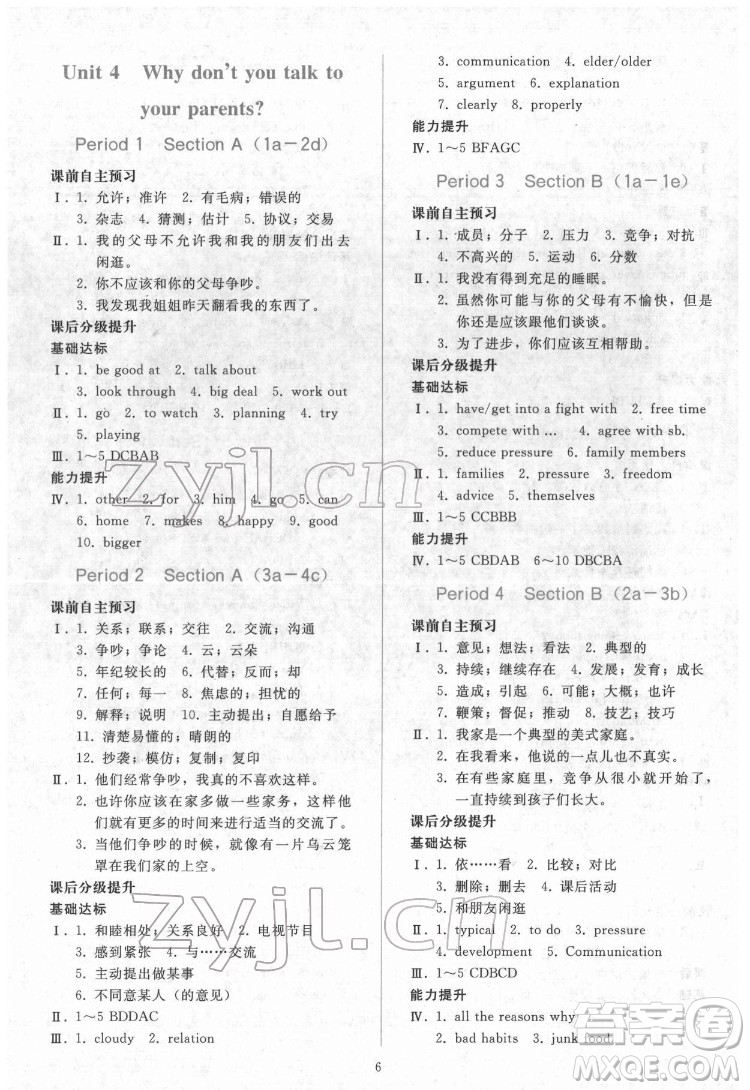 Unit 4 Why don't you talk to
your parents?
Period 1 Section A (1a－2d)
课前自主预习
Ⅰ. 1. 允许；准许 2. 有毛病；错误的
3. 杂志 4. 猜测；估计 5. 协议；交易
Ⅱ. 1. 我的父母不允许我和我的朋友们出去
闲逛。
2. 你不应该和你的父母争吵。
3. 我发现我姐姐昨天翻看我的东西了。
课后分级提升
基础达标
Ⅰ. 1. be good at 2. talk about
3. look through 4. big deal 5. work out
Ⅱ. 1. go 2. to watch 3. planning 4. try
5. playing
Ⅲ. 1～5 DCBAB
能力提升
Ⅳ. 1. other 2. for 3. him 4. go 5. can
6. home 7. makes 8. happy 9. good
10. bigger
Period 2 Section A (3a－4c)
课前自主预习
Ⅰ. 1. 关系；联系；交往 2. 交流；沟通
3. 争吵；争论 4. 云；云朵
5. 年纪较长的 6. 代替；反而；却
7. 任何；每一 8. 焦虑的；担忧的
9. 解释；说明 10. 主动提出；自愿给予
11. 清楚易懂的；晴朗的
12. 抄袭；模仿；复制；复印
Ⅱ. 1. 他们经常争吵，我真的不喜欢这样。
2. 也许你应该在家多做一些家务，这样他们
就有更多的时间来进行适当的交流了。
3. 当他们争吵的时候，就像有一片乌云笼
罩在我们家的上空。
课后分级提升
基础达标
Ⅰ. 1. 和睦相处；关系良好 2. 电视节目
3. 感到紧张 4. 与……交流
5. 主动提出做某事
6. 不同意某人（的意见）
Ⅱ. 1～5 BDDAC
Ⅲ. 1. cloudy 2. relation
3. communication 4. elder/older
5. argument 6. explanation
7. clearly 8. properly
能力提升
Ⅳ. 1～5 BFAGC
Period 3 Section B (1a－1e)
课前自主预习
Ⅰ. 1. 成员；分子 2. 压力 3. 竞争；对抗
4. 不高兴的 5. 运动 6. 分数
Ⅱ. 1. 我没有得到充足的睡眠。
2. 虽然你可能与你的父母有不愉快，但是
你还是应该跟他们谈谈。
3. 为了进步，你们应互相帮助。
课后分级提升
基础达标
Ⅰ. 1. have/get into a fight with 2. free time
3. compete with ... 4. agree with sb.
5. reduce pressure 6. family members
Ⅱ. 1. families 2. pressure 3. freedom
4. advice 5. themselves
Ⅲ. 1～5 CCBBB
能力提升
Ⅳ. 1～5 CBDAB 6～10 DBCBA
Period 4 Section B (2a－3b)
课前自主预习
Ⅰ. 1. 意见；想法；看法 2. 典型的
3. 持续；继续存在 4. 发展；发育；成长
5. 造成；引起 6. 可能；大概；也许
7. 鞭策；督促；推动 8. 技艺；技巧
Ⅱ. 1. 我家是一个典型的美式家庭。
2. 在我看来，他说的一点儿也不对。
3. 甚至在有些家庭里，竞争从很小的年龄
一直持续到孩子们长大。
课后分级提升
基础达标
Ⅰ. 1. 依……看 2. 比较；对比
3. 删除；删去 4. 课后活动
5. 和朋友闲逛
Ⅱ. 1. typical 2. to do 3. pressure
4. development 5. Communication
Ⅲ. 1～5 CDBCD
能力提升
Ⅳ. 1. all the reasons why
2. bad habits 3. junk food
6
zyjl.cn
zyjl.cn
答案圈
MXQE.COM